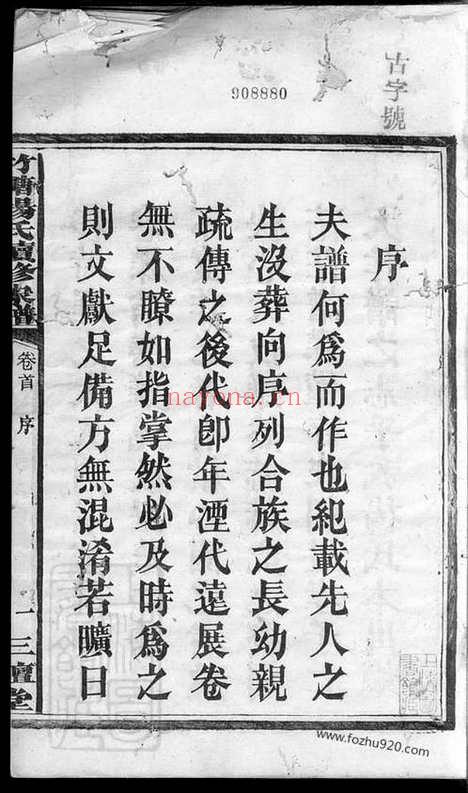 古字號
908880
序
夫譜何爲而作也紀載先人之
生沒葬向序列合族之長幼親
疏傳之後代卽年湮代遠展卷
無不瞭如指掌然必及時爲之
則文獻足備方無混淆若曠日
楊氏續修家譜
卷首
序
一
三
堂
nayona.cn
www.fozhu920.com